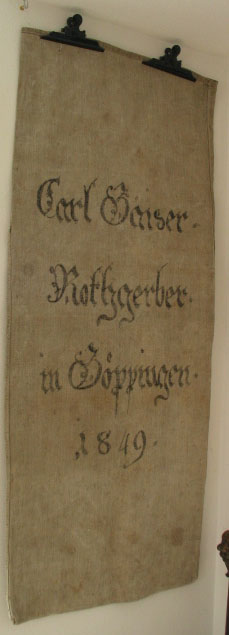 Carl Gaiser.
Rothgerber.
in Göppingen.
1849.